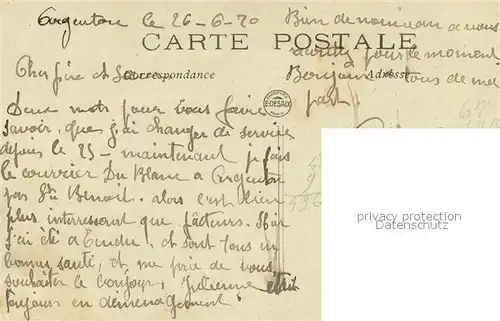 Argenton le 26-6-20
CARTE POSTALE
Correspondance
Adresse
Cher frère et Soeur
Deux mots pour vous faire
savoir, que j'ai changer de service
depuis le 25 - maintenant je fais
le courrier Du Blanc a Argenton
par St Benoit. alors c'est bien
plus interressant que facteurs. Hier
j'ai été a Tendu, et sont tous en
bonne santé, et me prie de vous
souhaiter le bonjour, Julienne était
toujours en déménagement
Bien de nouveau a vous
pour le moment
Bonjour a tous de ma
part.
E. DESAIX
privacy protection
Datenschutz